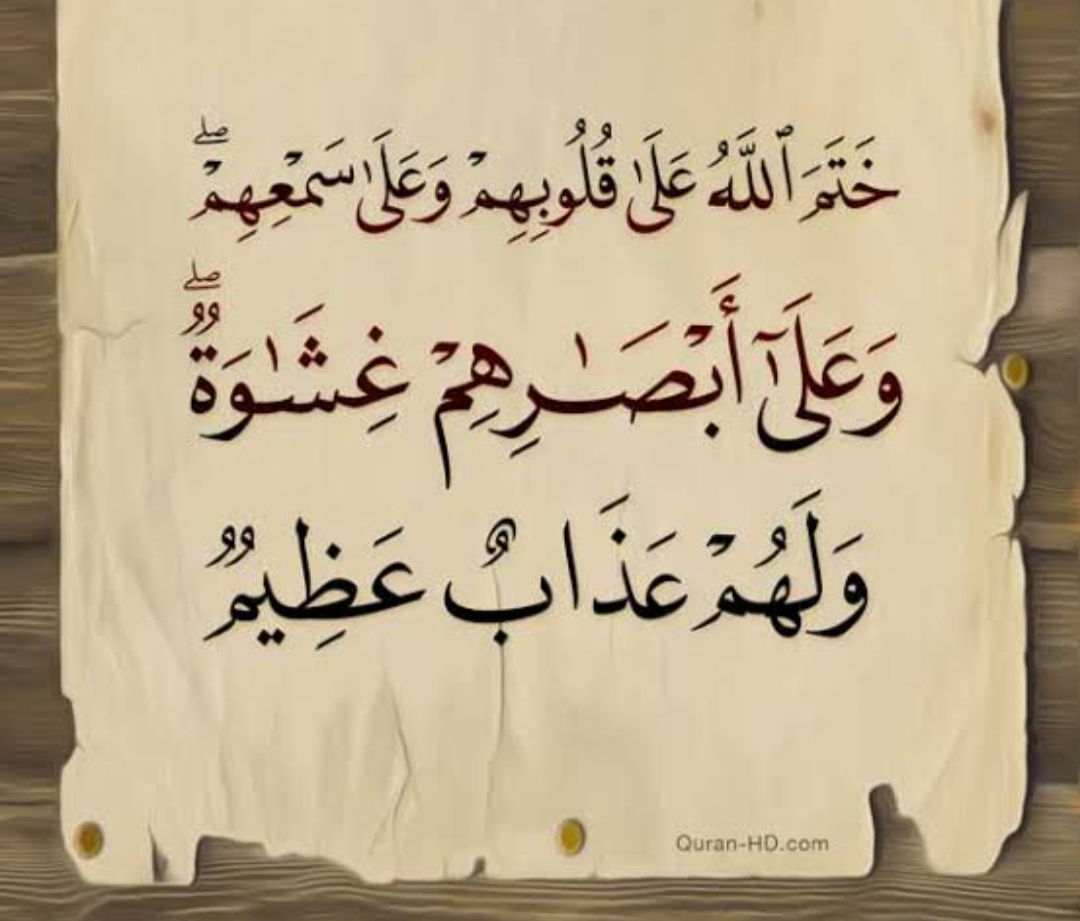 خَتَمَ ٱللَّهُ عَلَىٰ قُلُوبِهِمْ وَعَلَىٰ سَمْعِهِمْ ۖ
وَعَلَىٰٓ أَبْصَـٰرِهِمْ غِشَـٰوَةٌ ۖ
وَلَهُمْ عَذَابٌ عَظِيمٌ
Quran-HD.com